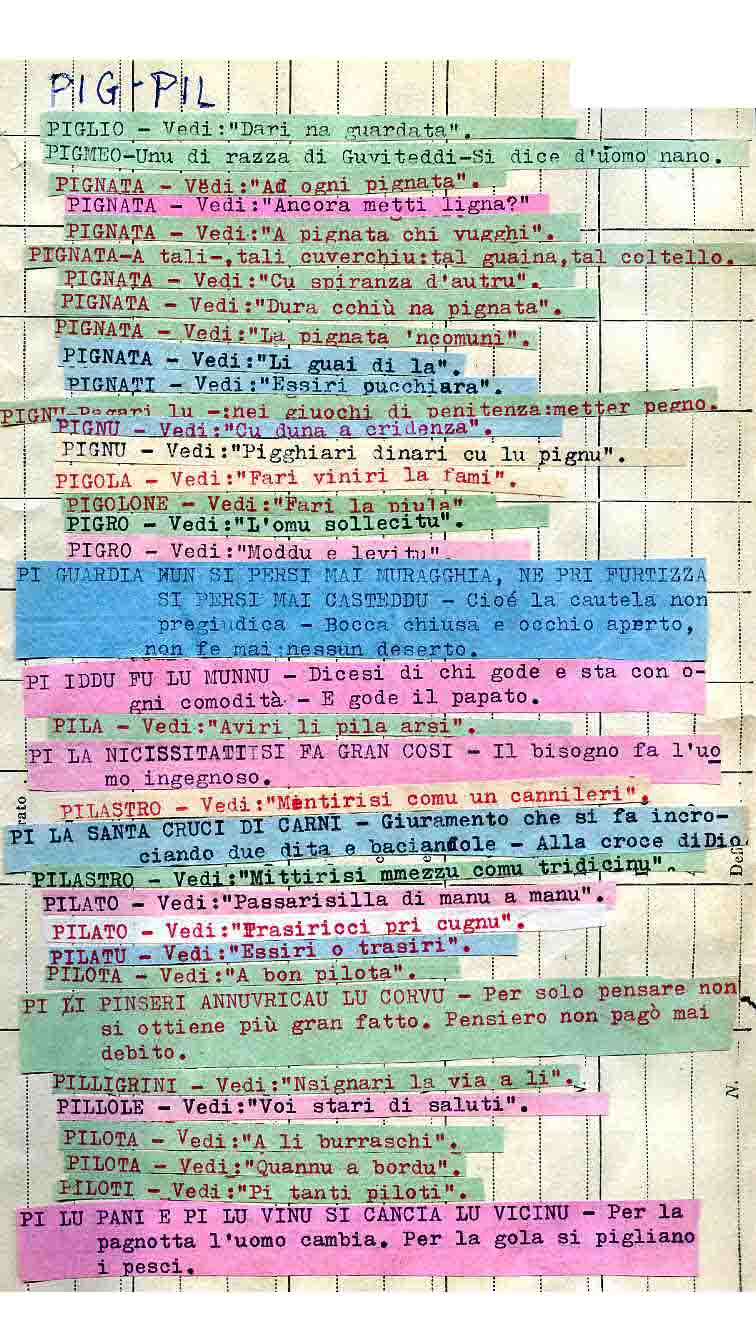 PIG-PIL
PIGLIO - Vedi:"Dari na guardata".
PIGMEO-Unu di razza di Guviteddi-Si dice d'uomo nano.
PIGNATA - Vedi:"Ad ogni pignata".
PIGNATA - Vedi:"Ancora metti ligna?"
PIGNATA - Vedi:"A pignata chi vugghi".
PIGNATA-A tali-,tali cuverchiu:tal guaina,tal coltello.
PIGNATA - Vedi:"Cu spiranza d'autru".
PIGNATA - Vedi:"Dura cchiù na pignata".
PIGNATA - Vedi:"La pignata 'ncomuni".
PIGNATA - Vedi:"Li guai di la".
PIGNATI - Vedi:"Essiri pucchiara".
PIGNU-Pagari lu -:nei giuochi di penitenza:metter pegno.
PIGNU - Vedi:"Cu duna a cridenza".
PIGNU - Vedi:"Pigghiari dinari cu lu pignu".
PIGOLA - Vedi:"Fari viniri la fami".
PIGOLONE - Vedi:"Fari la piula"
PIGRO - Vedi:"L'omu sollecitu".
PIGRO - Vedi:"Moddu e levitu"
PI GUARDIA NUN SI PERSI MAI MURAGGHIA, NE PRI FURTIZZA
SI PERSI MAI CASTEDDU - Cioé la cautela non
pregiudica - Bocca chiusa e occhio aperto,
non fe mai nessun deserto.
PI IDDU FU LU MUNNU - Dicesi di chi gode e sta con o-
gni comodità - E gode il papato.
PILA - Vedi:"Aviri li pila arsi".
PI LA NICISSITATI SI FA GRAN COSI - Il bisogno fa l'uo
mo ingegnoso.
PILASTRO - Vedi:"Mentirisi comu un cannileri".
rato
PI LA SANTA CRUCI DI CARNI - Giuramento che si fa incro-
ciando due dita e baciandole - Alla croce diDio.
PILASTRO - Vedi:"Mittirisi mmezzu comu tridicinu".
PILATO - Vedi:"Passarisilla di manu a manu".
PILATO - Vedi:"Trasiricci pri cugnu".
PILATU - Vedi:"Essiri o trasiri".
PILOTA - Vedi:"A bon pilota".
PI LI PINSERI ANNUVRICAU LU CORVU - Per solo pensare non
si ottiene più gran fatto. Pensiero non pagò mai
debito.
PILLIGRINI - Vedi:"Nsignari la via a li".
N.
PILLOLE - Vedi:"Voi stari di saluti".
PILOTA - Vedi:"A li burraschi".
PILOTA - Vedi:"Quannu a bordu".
PILOTI - Vedi:"Pi tanti piloti".
PI LU PANI E PI LU VINU SI CANCIA LU VICINU - Per la
pagnotta l'uomo cambia. Per la gola si pigliano
i pesci.